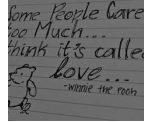 Some People Care
Too Much...
think it's called
love...
-winnie the pooh